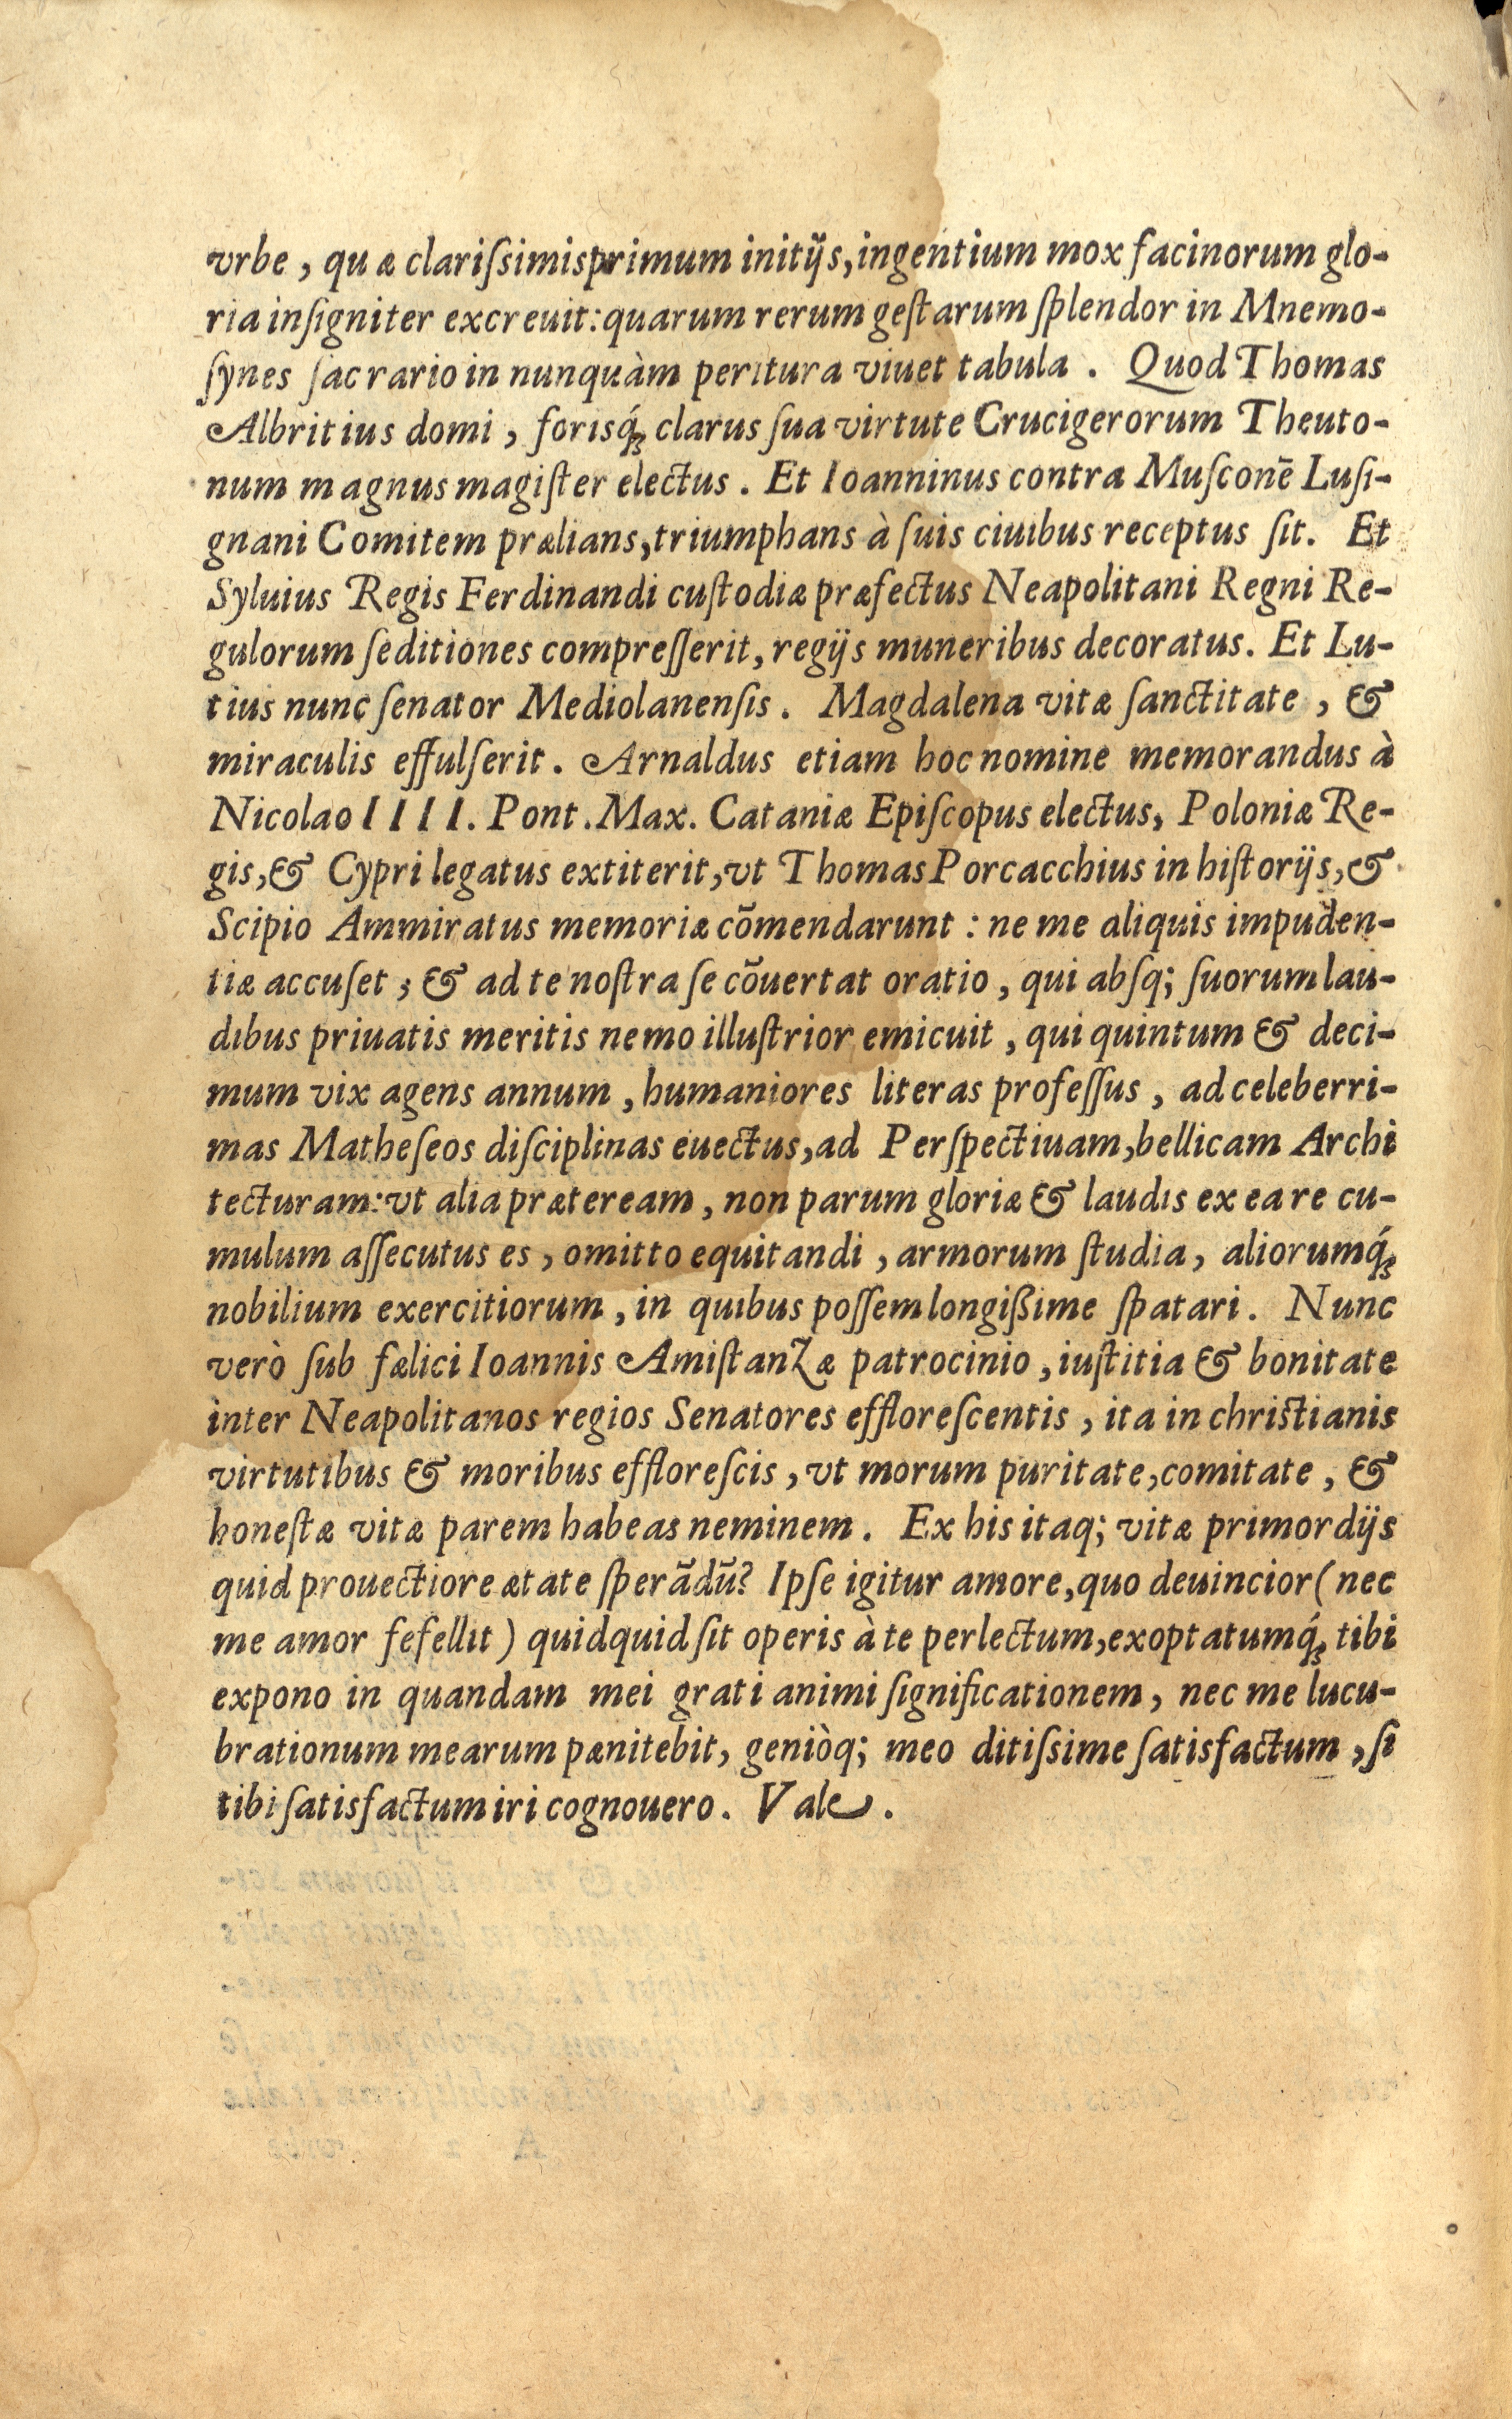 vrbe, quæ clariſsimis primum initijs, ingentium mox facinorum glo-
ria inſigniter excreuit: quarum rerum geſtarum ſplendor in Mnemo-
ſynes ſacrario in nunquàm peritura viuet tabula. Quod Thomas
Albritius domi, forisq́ꝫ clarus ſua virtute Crucigerorum Theuto-
num magnus magiſter electus. Et Ioanninus contra Muſconē Luſi-
gnani Comitem prælians, triumphans à ſuis ciuibus receptus ſit. Et
Syluius Regis Ferdinandi cuſtodiæ præfectus Neapolitani Regni Re-
gulorum ſeditiones compreſſerit, regijs muneribus decoratus. Et Lu-
tius nunc ſenator Mediolanenſis. Magdalena vitæ ſanctitate, &
miraculis effulſerit. Arnaldus etiam hoc nomine memorandus à
Nicolao IIII. Pont. Max. Cataniæ Epiſcopus electus, Poloniæ Re-
gis, & Cypri legatus extiterit, vt Thomas Porcacchius in hiſtorijs, &
Scipio Ammiratus memoriæ cōmendarunt: ne me aliquis impuden-
tiæ accuſet; & ad te noſtra ſe cōuertat oratio, qui abſq; ſuorum lau-
dibus priuatis meritis nemo illuſtrior emicuit, qui quintum & deci-
mum vix agens annum, humaniores literas profeſſus, ad celeberri-
mas Matheſeos diſciplinas euectus, ad Perſpectiuam, bellicam Archi
tecturam: vt alia præteream, non parum gloriæ & laudis ex ea re cu-
mulum aſſecutus es, omitto equitandi, armorum ſtudia, aliorumq́ꝫ
nobilium exercitiorum, in quibus poſſem longißime ſpatari. Nunc
verò ſub fælici Ioannis Amiſtanzæ patrocinio, iuſtitia & bonitate
inter Neapolitanos regios Senatores effloreſcentis, ita in chriſtianis
virtutibus & moribus effloreſcis, vt morum puritate, comitate, &
honeſtæ vitæ parem habeas neminem. Ex his itaq; vitæ primordijs
quid prouectiore ætate ſperādū? Ipſe igitur amore, quo deuincior (nec
me amor fefellit) quidquid ſit operis à te perlectum, exoptatumq́ꝫ tibi
expono in quandam mei grati animi ſignificationem, nec me lucu-
brationum mearum pænitebit, geniòq; meo ditiſsime ſatisfactum, ſi
tibi ſatisfactum iri cognouero. Vale.